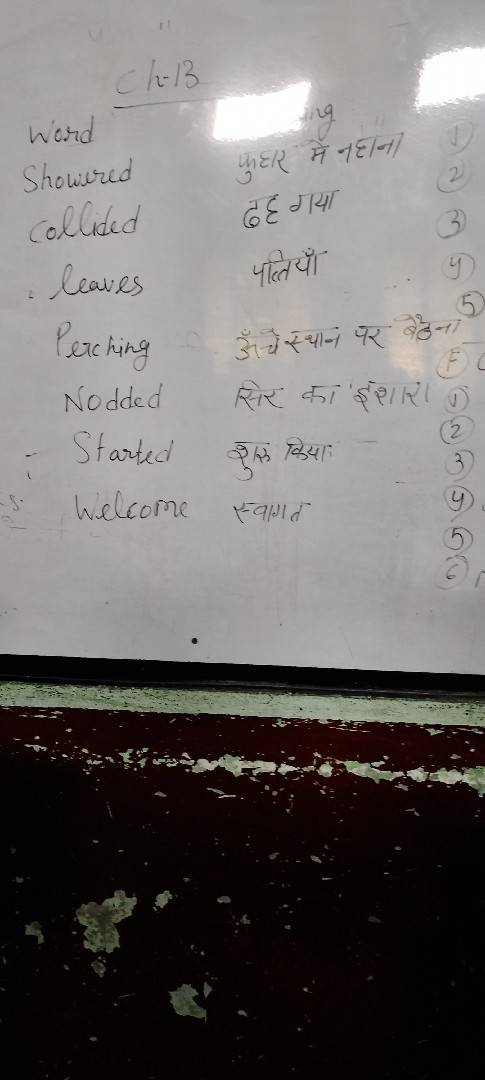 Ch-13
Word
Showered फुहार में नहाना
Collided ढह गया
leaves पत्तियाँ
Perching ऊँचे स्थान पर बैठना
Nodded सिर का इशारा
Started शुरू किया
Welcome स्वागत
1
2
3
4
5
F
1
2
3
4
5
6